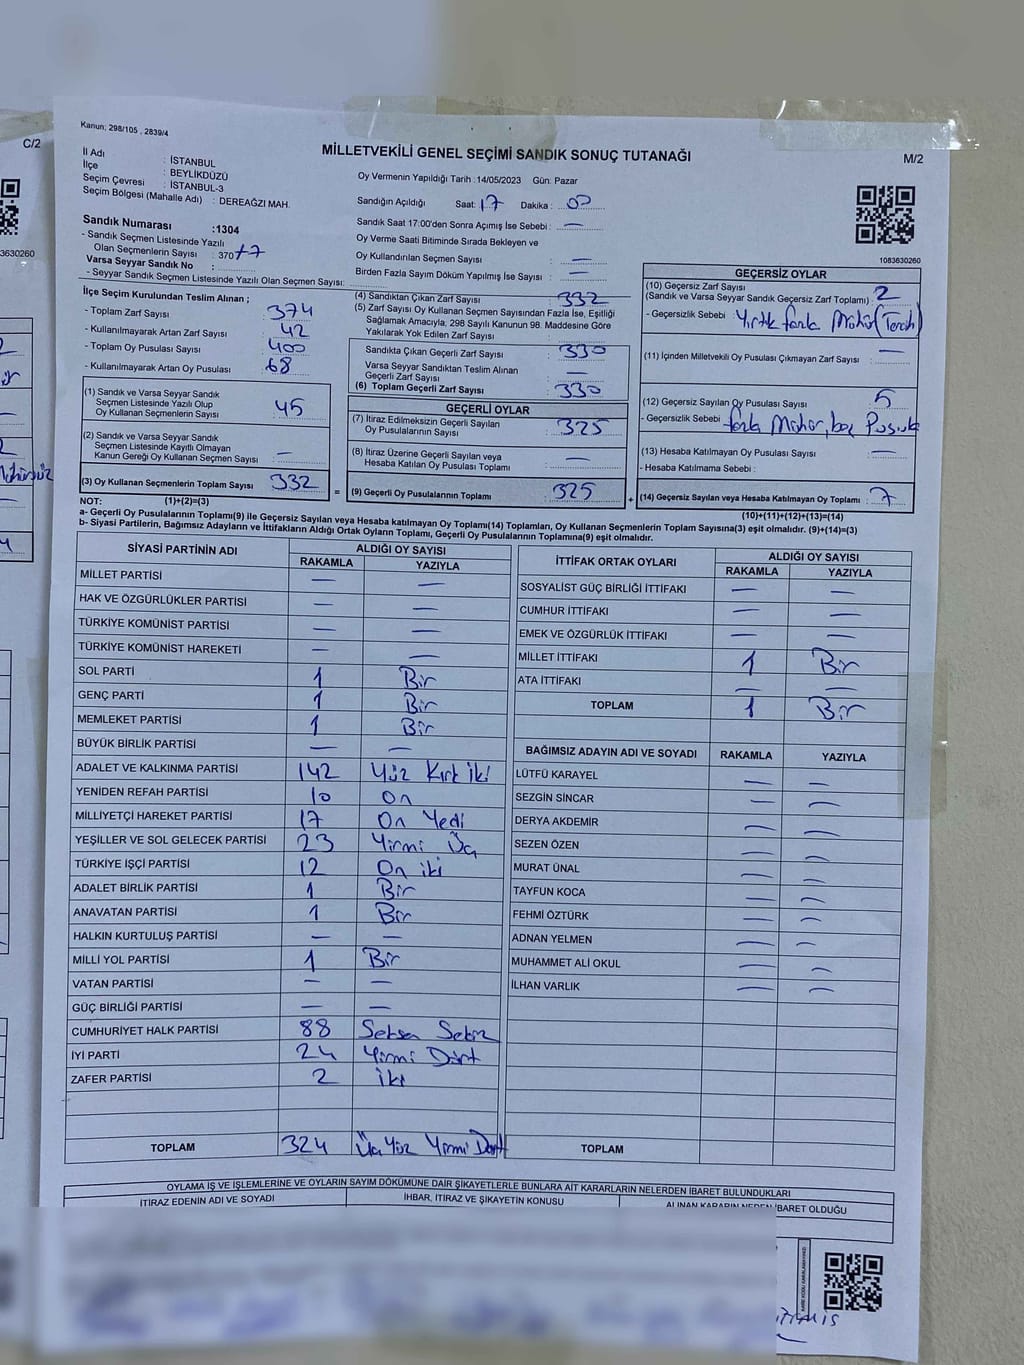 Kanun; 298/105 , 2839/4
C/2
MİLLETVEKİLİ GENEL SEÇİMİ SANDIK SONUÇ TUTANAĞI
M/2
İl Adı : İSTANBUL
İlçe : BEYLİKDÜZÜ
Seçim Çevresi : İSTANBUL-3
Seçim Bölgesi (Mahalle Adı) : DEREAĞZI MAH.
Oy Vermenin Yapıldığı Tarih :14/05/2023 Gün: Pazar
Sandığın Açıldığı Saat: 17 Dakika : 00
Sandık Saat 17:00'den Sonra Açılmış İse Sebebi : —
Oy Verme Saati Bitiminde Sırada Bekleyen ve
Oy Kullandırılan Seçmen Sayısı : —
Birden Fazla Sayım Döküm Yapılmış İse Sayısı : —
Sandık Numarası :1304
- Sandık Seçmen Listesinde Yazılı
Olan Seçmenlerin Sayısı : 370 +7
Varsa Seyyar Sandık No :
- Seyyar Sandık Seçmen Listesinde Yazılı Olan Seçmen Sayısı:
3630260
1083630260
İlçe Seçim Kurulundan Teslim Alınan ;
- Toplam Zarf Sayısı : 374
- Kullanılmayarak Artan Zarf Sayısı : 42
- Toplam Oy Pusulası Sayısı : 400
- Kullanılmayarak Artan Oy Pusulası : 68
(1) Sandık ve Varsa Seyyar Sandık
Seçmen Listesinde Yazılı Olup
Oy Kullanan Seçmenlerin Sayısı : 45
(2) Sandık ve Varsa Seyyar Sandık
Seçmen Listesinde Kayıtlı Olmayan
Kanun Gereği Oy Kullanan Seçmen Sayısı : —
(3) Oy Kullanan Seçmenlerin Toplam Sayısı : 332
(4) Sandıktan Çıkan Zarf Sayısı : 332
(5) Zarf Sayısı Oy Kullanan Seçmen Sayısından Fazla İse, Eşitliği
Sağlamak Amacıyla, 298 Sayılı Kanunun 98. Maddesine Göre
Yakılarak Yok Edilen Zarf Sayısı :
Sandıkta Çıkan Geçerli Zarf Sayısı : 330
Varsa Seyyar Sandıktan Teslim Alınan
Geçerli Zarf Sayısı : —
(6) Toplam Geçerli Zarf Sayısı : 330
GEÇERLİ OYLAR
(7) İtiraz Edilmeksizin Geçerli Sayılan
Oy Pusulalarının Sayısı : 325
(8) İtiraz Üzerine Geçerli Sayılan veya
Hesaba Katılan Oy Pusulası Toplamı : —
= (9) Geçerli Oy Pusulalarının Toplamı : 325
GEÇERSİZ OYLAR
(10) Geçersiz Zarf Sayısı
(Sandık ve Varsa Seyyar Sandık Geçersiz Zarf Toplamı) : 2
- Geçersizlik Sebebi : Yırtık fazla Mühür
(11) İçinden Milletvekili Oy Pusulası Çıkmayan Zarf Sayısı : —
(12) Geçersiz Sayılan Oy Pusulası Sayısı : 5
- Geçersizlik Sebebi : fazla Mühür, boş Pusula
(13) Hesaba Katılmayan Oy Pusulası Sayısı : —
- Hesaba Katılmama Sebebi :
+ (14) Geçersiz Sayılan veya Hesaba Katılmayan Oy Toplamı : 7
NOT: (1)+(2)=(3) (10)+(11)+(12)+(13)=(14)
a- Geçerli Oy Pusulalarının Toplamı(9) ile Geçersiz Sayılan veya Hesaba katılmayan Oy Toplamı(14) Toplamları, Oy Kullanan Seçmenlerin Toplam Sayısına(3) eşit olmalıdır. (9)+(14)=(3)
b- Siyasi Partilerin, Bağımsız Adayların ve İttifakların Aldığı Ortak Oyların Toplamı, Geçerli Oy Pusulalarının Toplamına(9) eşit olmalıdır.
SİYASİ PARTİNİN ADI ALDIĞI OY SAYISI
RAKAMLA YAZIYLA
MİLLET PARTİSİ — —
HAK VE ÖZGÜRLÜKLER PARTİSİ — —
TÜRKİYE KOMÜNİST PARTİSİ — —
TÜRKİYE KOMÜNİST HAREKETİ — —
SOL PARTİ 1 Bir
GENÇ PARTİ 1 Bir
MEMLEKET PARTİSİ 1 Bir
BÜYÜK BİRLİK PARTİSİ — —
ADALET VE KALKINMA PARTİSİ 142 Yüz Kırk iki
YENİDEN REFAH PARTİSİ 10 On
MİLLİYETÇİ HAREKET PARTİSİ 17 On Yedi
YEŞİLLER VE SOL GELECEK PARTİSİ 23 Yirmi Üç
TÜRKİYE İŞÇİ PARTİSİ 12 On iki
ADALET BİRLİK PARTİSİ 1 Bir
ANAVATAN PARTİSİ 1 Bir
HALKIN KURTULUŞ PARTİSİ — —
MİLLİ YOL PARTİSİ 1 Bir
VATAN PARTİSİ — —
GÜÇ BİRLİĞİ PARTİSİ — —
CUMHURİYET HALK PARTİSİ 88 Seksen Sekiz
İYİ PARTİ 24 Yirmi Dört
ZAFER PARTİSİ 2 iki
TOPLAM 324 Üç Yüz Yirmi Dört
İTTİFAK ORTAK OYLARI ALDIĞI OY SAYISI
RAKAMLA YAZIYLA
SOSYALİST GÜÇ BİRLİĞİ İTTİFAKI — —
CUMHUR İTTİFAKI — —
EMEK VE ÖZGÜRLÜK İTTİFAKI — —
MİLLET İTTİFAKI 1 Bir
ATA İTTİFAKI — —
TOPLAM 1 Bir
BAĞIMSIZ ADAYIN ADI VE SOYADI RAKAMLA YAZIYLA
LÜTFÜ KARAYEL — —
SEZGİN SİNCAR — —
DERYA AKDEMİR — —
SEZEN ÖZEN — —
MURAT ÜNAL — —
TAYFUN KOCA — —
FEHMİ ÖZTÜRK — —
ADNAN YELMEN — —
MUHAMMET ALİ OKUL — —
İLHAN VARLIK — —
TOPLAM
OYLAMA İŞ VE İŞLEMLERİNE VE OYLARIN SAYIM DÖKÜMÜNE DAİR ŞİKAYETLERLE BUNLARA AİT KARARLARIN NELERDEN İBARET BULUNDUKLARI
İTİRAZ EDENİN ADI VE SOYADI İHBAR, İTİRAZ VE ŞİKAYETİN KONUSU ALINAN KARARIN NEDEN İBARET OLDUĞU